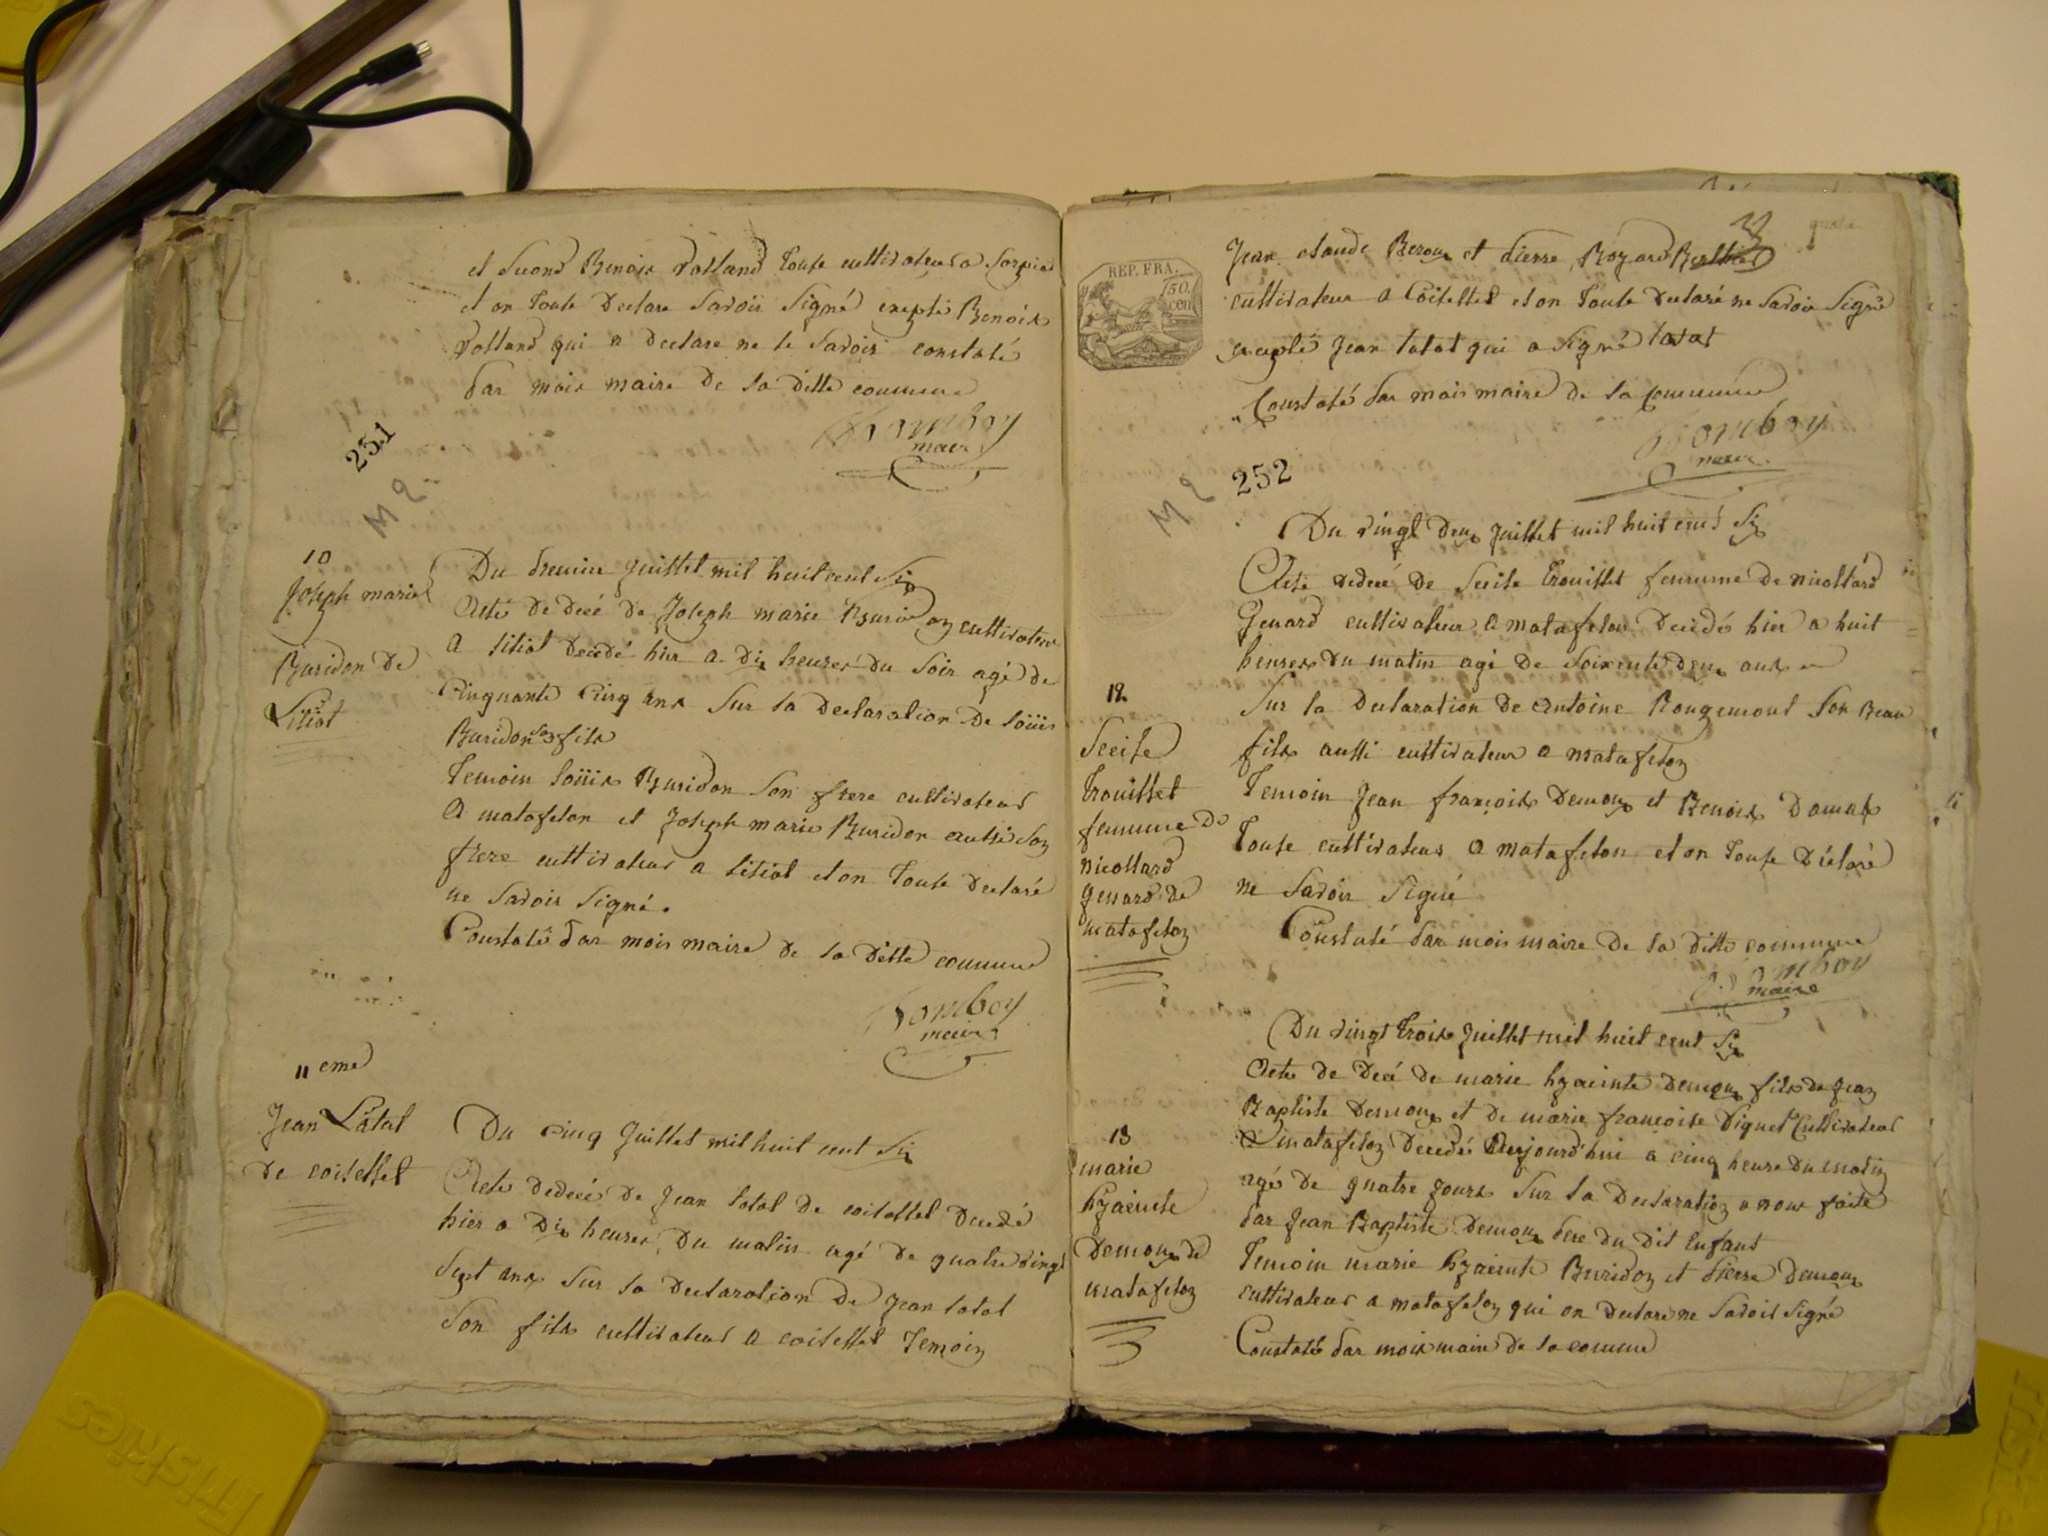 et secons Benoix Volland touse cultivateur a Corpia
et on touse Declare Savoir Signé exepté Benoix
Volland qui a declare ne le Savoir constaté
par mois maire de la ditte commune
Domboy
maire
251
M 2
10
Joseph marie
Buridon De
Litiat
Du premier juillet mil huit cent Six
Acte De Decé De Joseph marie Buridon cultivateur
A Litiat Decedé hier a Dix heures Du Soir agé De
Cinquante Cinq ans Sur la Declaration De Loüis
Buridon Son fils
Temoin loüix Buridon Son frere cultivateur
A matafelon et Joseph marie Buridon aussi Son
frere cultivateur a litiat et on touse Declaré
ne Savoir Signé.
Constaté par mois maire De la Ditte commune
Domboy
maire
11 eme
Jean Latat
De coiselet
Du cinq Juillet mil huit cent Six
Acte De decé De Jean latat De coiselet Decedé
hier a Dix heures Du matin agé De quatre vingt
Sept ans Sur la Declaration De Jean latat
Son fils cultivateur a coiselet Temoin
REP. FRA.
50.
cen
Jean claude Beroux et pierre Royard Berthet
cultivateur a Coiselet et on touse Declaré ne Savoir Signé
exepté Jean latat qui a Signé latat
Constaté par mois maire De la Commune
Domboy
maire
M 2
252
Du vingt Deux Juillet mil huit cent Six
Acte de decé De Secile trouillet femme De nicollard
Genard cultivateur a matafelon Decedé hier a huit
heures Du matin agé De Soixente Deux ans
Sur la Declaration De Antoine Rougemont Son Beau
12
Secile
trouillet
femme De
nicollard
genard De
matafelon
fils aussi cultivateur a matafelon
Temoin Jean françoix Demoux et Benoix Damas
touse cultivateur a matafelon et on touse Déclaré
ne Savoir Signé
Constaté par mois maire De la Ditte commune
Domboy
maire
Du vingt troix Juillet mil huit cent Six
Acte De Decé De marie hyacinte Demoux fils De Jean
Baptiste Demoux et De marie françoise Piquet Cultivateur
A matafelon Decedé Aujourd'hui a cinq heure Du matin
13
marie
hyacinte
Demoux De
matafelon
agé De quatre jours Sur la Declaration a nous faite
par Jean Baptiste Demoux pere Du Dit Enfant
Temoin marie hyacinte Buridon et pierre Demoux
cultivateur a matafelon qui on Declare ne Savoir Signé
Constaté par mois maire De la comune
Triskies